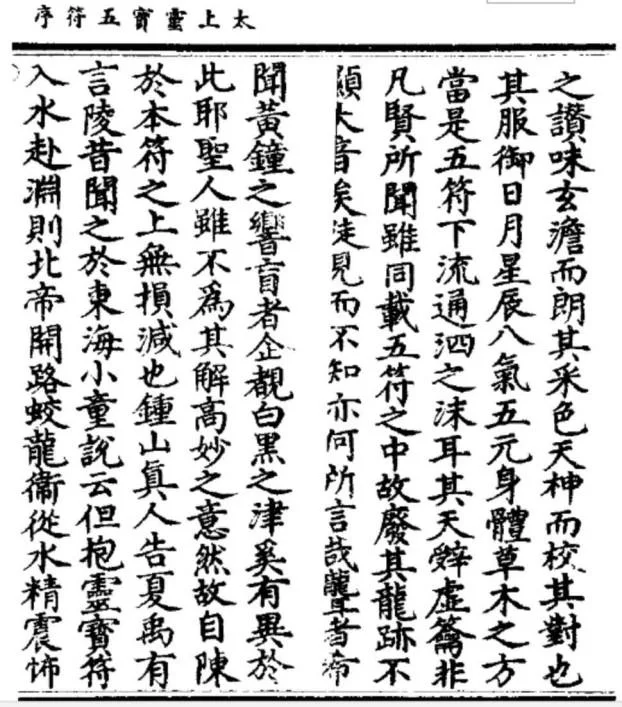 太上靈寶五符序
之讚味玄澹而朗其采色天神而校其對也
其服御日月星辰八氣五元身體草木之方
當是五符下流通泗之沫耳其天辭虛籥非
凡賢所聞雖同載五符之中故廢其龍跡不
顯大音矣徒見而不知亦何所言哉聾者希
聞黃鐘之響盲者企覩白黑之津奚有異於
此耶聖人雖不爲其解高妙之意然故自陳
於本符之上無損減也鍾山眞人告夏禹有
言陵昔聞之於東海小童說云但抱靈寶符
入水赴淵則北帝開路蛟龍衞從水精震怖